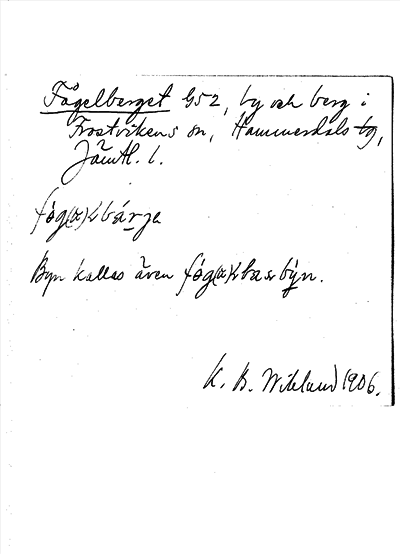 Fågelberget G52, by och berg i
Frostvikens sn, Hammerdals tg,
Jämtl. l.
Byn kallas även
K. B. Wiklund 1906.